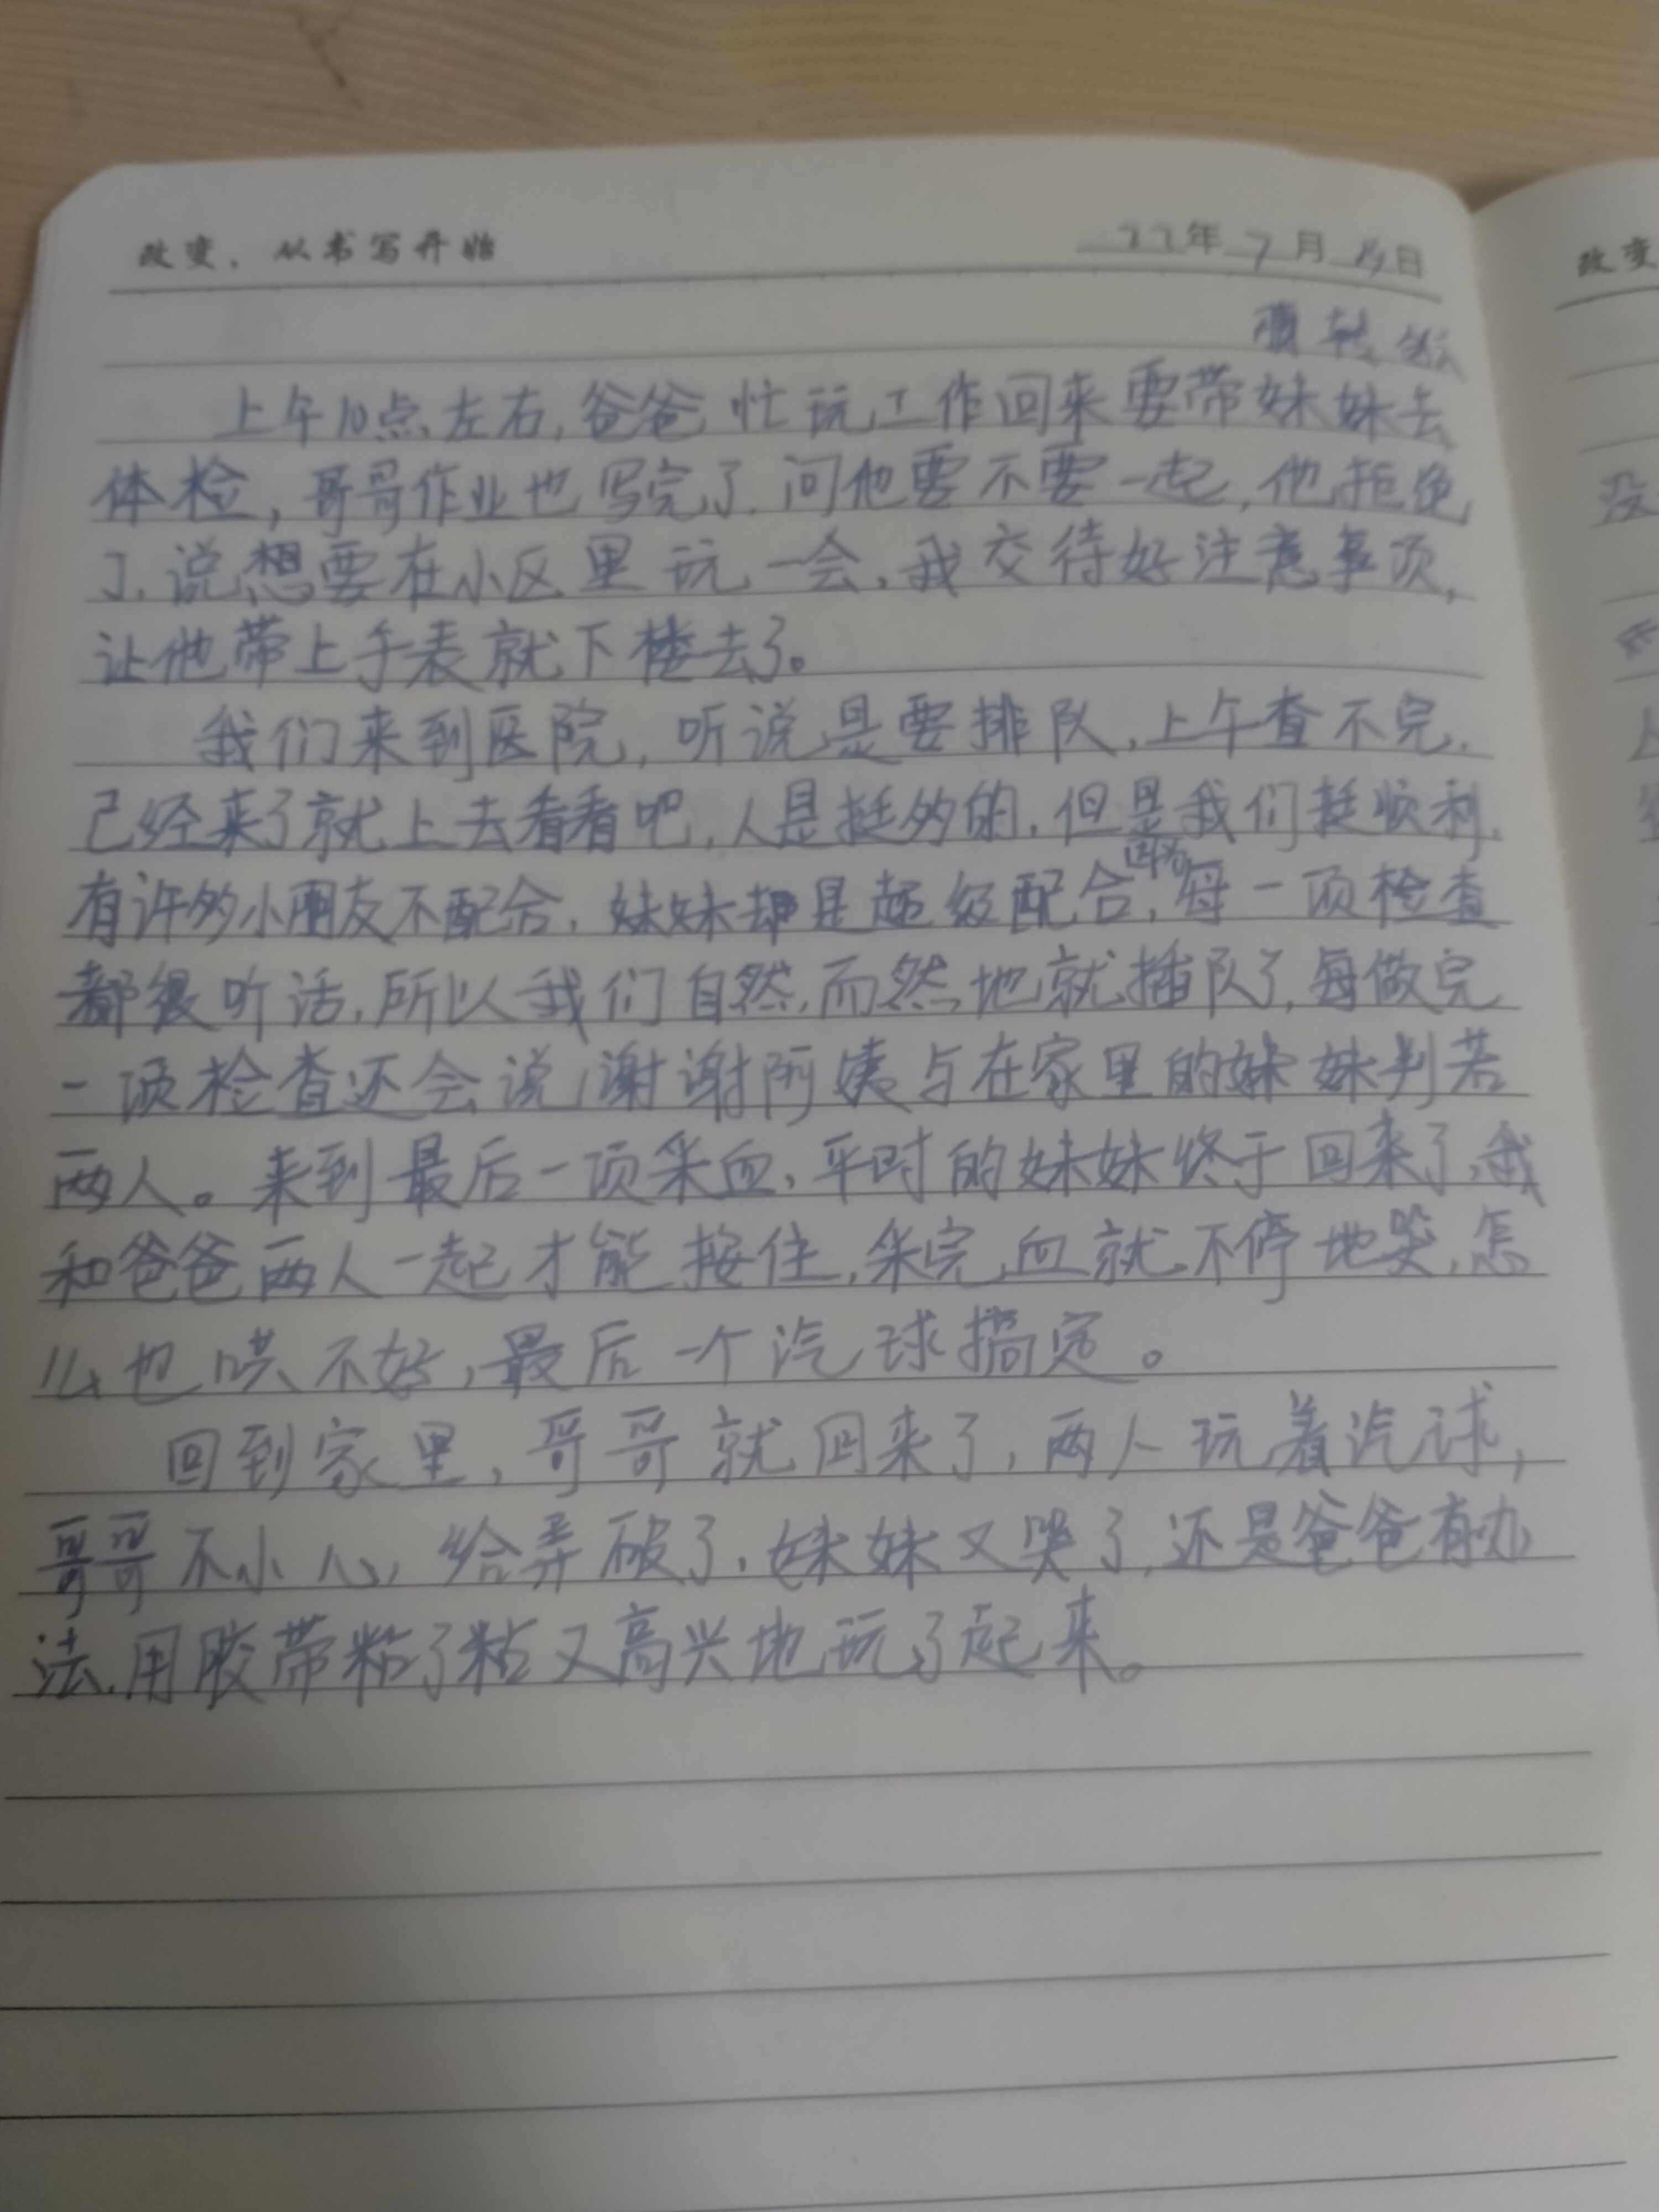 改变，从书写开始
22年 7月 日
上午10点左右，爸爸忙玩工作回来要带妹妹去
体检，哥哥作业也写完了.问他要不要一起，他拒绝
了.说想要在小区里玩一会，我交待好注意事项，
让他带上手表就下楼去了。
我们来到医院，听说是要排队，上午查不完，
已经来了就上去看看吧，人是挺多的，但是我们挺顺利，
有许多小朋友不配合，妹妹却是超级配合，因为每一项检查
都很听话，所以我们自然而然地就插队了，每做完
一项检查还会说，谢谢阿姨与在家里的妹妹判若
两人。来到最后一项采血，平时的妹妹终于回来了，我
和爸爸两人一起才能按住，采完血就不停地哭，怎
么也哄不好，最后一个汽球搞定。
回到家里，哥哥就回来了，两人玩着汽球，
哥哥不小心，给弄破了，妹妹又哭了，还是爸爸有办
法.用胶带粘了粘又高兴地玩了起来。
改变
没